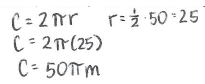 C = 2πr   r = ½ · 50 = 25
C = 2π(25)
C = 50π m